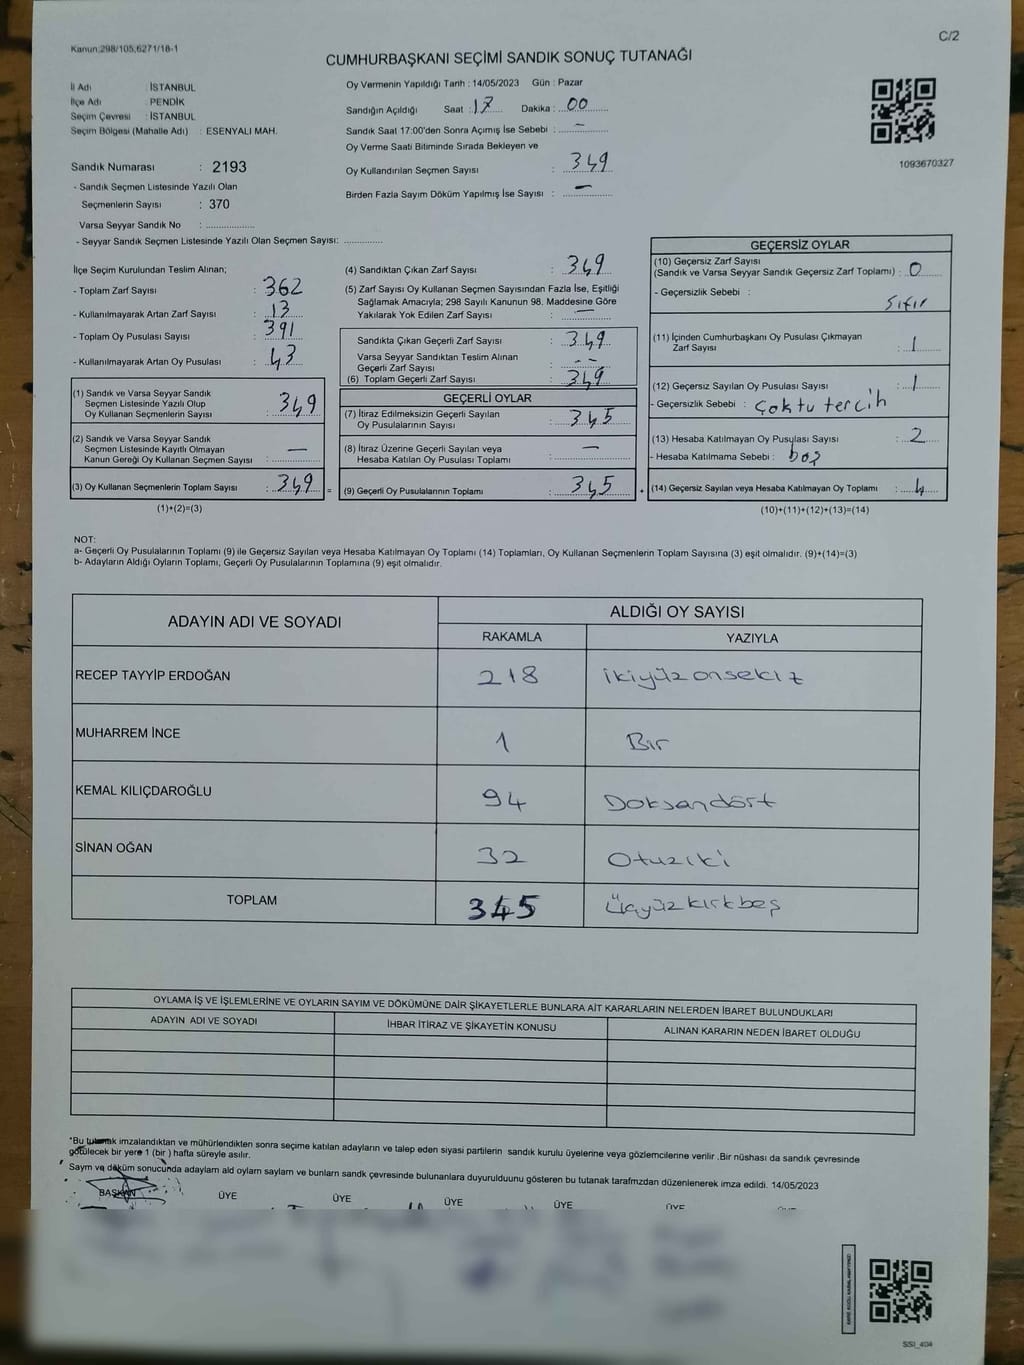 Kanun:298/105,6271/18-1
C/2
CUMHURBAŞKANI SEÇİMİ SANDIK SONUÇ TUTANAĞI
İl Adı : İSTANBUL
İlçe Adı : PENDİK
Seçim Çevresi : İSTANBUL
Seçim Bölgesi (Mahalle Adı) : ESENYALI MAH.
Sandık Numarası : 2193
- Sandık Seçmen Listesinde Yazılı Olan
Seçmenlerin Sayısı : 370
Varsa Seyyar Sandık No : ..............
- Seyyar Sandık Seçmen Listesinde Yazılı Olan Seçmen Sayısı: ............
Oy Vermenin Yapıldığı Tarih : 14/05/2023 Gün : Pazar
Sandığın Açıldığı Saat : 17 Dakika : 00
Sandık Saat 17:00'den Sonra Açımış İse Sebebi : -
Oy Verme Saati Bitiminde Sırada Bekleyen ve
Oy Kullandırılan Seçmen Sayısı : 349
Birden Fazla Sayım Döküm Yapılmış İse Sayısı : -
1093670327
İlçe Seçim Kurulundan Teslim Alınan;
- Toplam Zarf Sayısı : 362
- Kullanılmayarak Artan Zarf Sayısı : 13
- Toplam Oy Pusulası Sayısı : 391
- Kullanılmayarak Artan Oy Pusulası : 43
(1) Sandık ve Varsa Seyyar Sandık
Seçmen Listesinde Yazılı Olup
Oy Kullanan Seçmenlerin Sayısı : 349
(2) Sandık ve Varsa Seyyar Sandık
Seçmen Listesinde Kayıtlı Olmayan
Kanun Gereği Oy Kullanan Seçmen Sayısı : -
(3) Oy Kullanan Seçmenlerin Toplam Sayısı : 349 =
(1)+(2)=(3)
(4) Sandıktan Çıkan Zarf Sayısı : 349
(5) Zarf Sayısı Oy Kullanan Seçmen Sayısından Fazla İse, Eşitliği
Sağlamak Amacıyla; 298 Sayılı Kanunun 98. Maddesine Göre
Yakılarak Yok Edilen Zarf Sayısı : -
Sandıkta Çıkan Geçerli Zarf Sayısı : 349
Varsa Seyyar Sandıktan Teslim Alınan
Geçerli Zarf Sayısı : - -
(6) Toplam Geçerli Zarf Sayısı : 349
GEÇERLİ OYLAR
(7) İtiraz Edilmeksizin Geçerli Sayılan
Oy Pusulalarının Sayısı : 345
(8) İtiraz Üzerine Geçerli Sayılan veya
Hesaba Katılan Oy Pusulası Toplamı : -
(9) Geçerli Oy Pusulalarının Toplamı : 345 +
GEÇERSİZ OYLAR
(10) Geçersiz Zarf Sayısı
(Sandık ve Varsa Seyyar Sandık Geçersiz Zarf Toplamı) : 0
- Geçersizlik Sebebi : Sıfır
(11) İçinden Cumhurbaşkanı Oy Pusulası Çıkmayan
Zarf Sayısı : 1
(12) Geçersiz Sayılan Oy Pusulası Sayısı : 1
- Geçersizlik Sebebi : Çoktu tercih
(13) Hesaba Katılmayan Oy Pusulası Sayısı : 2
- Hesaba Katılmama Sebebi : boş
(14) Geçersiz Sayılan veya Hesaba Katılmayan Oy Toplamı : 4
(10)+(11)+(12)+(13)=(14)
NOT:
a- Geçerli Oy Pusulalarının Toplamı (9) ile Geçersiz Sayılan veya Hesaba Katılmayan Oy Toplamı (14) Toplamları, Oy Kullanan Seçmenlerin Toplam Sayısına (3) eşit olmalıdır. (9)+(14)=(3)
b- Adayların Aldığı Oyların Toplamı, Geçerli Oy Pusulalarının Toplamına (9) eşit olmalıdır.
ADAYIN ADI VE SOYADI
ALDIĞI OY SAYISI
RAKAMLA YAZIYLA
RECEP TAYYİP ERDOĞAN 218 ikiyüzonsekiz
MUHARREM İNCE 1 Bir
KEMAL KILIÇDAROĞLU 94 Doksandört
SİNAN OĞAN 32 Otuziki
TOPLAM 345 Üçyüzkırkbeş
OYLAMA İŞ VE İŞLEMLERİNE VE OYLARIN SAYIM VE DÖKÜMÜNE DAİR ŞİKAYETLERLE BUNLARA AİT KARARLARIN NELERDEN İBARET BULUNDUKLARI
ADAYIN ADI VE SOYADI İHBAR İTİRAZ VE ŞİKAYETİN KONUSU ALINAN KARARIN NEDEN İBARET OLDUĞU
*Bu tutanak imzalandıktan ve mühürlendikten sonra seçime katılan adayların ve talep eden siyasi partilerin sandık kurulu üyelerine veya gözlemcilerine verilir .Bir nüshası da sandık çevresinde
götülecek bir yere 1 (bir ) hafta süreyle asılır.
Sayım ve döküm sonucunda adaylam ald oylam saylam ve bunlarn sandk çevresinde bulunanlara duyurulduunu gösteren bu tutanak tarafmzdan düzenlenerek imza edildi. 14/05/2023
BAŞKAN ÜYE ÜYE ÜYE ÜYE ÜYE
SSI_404